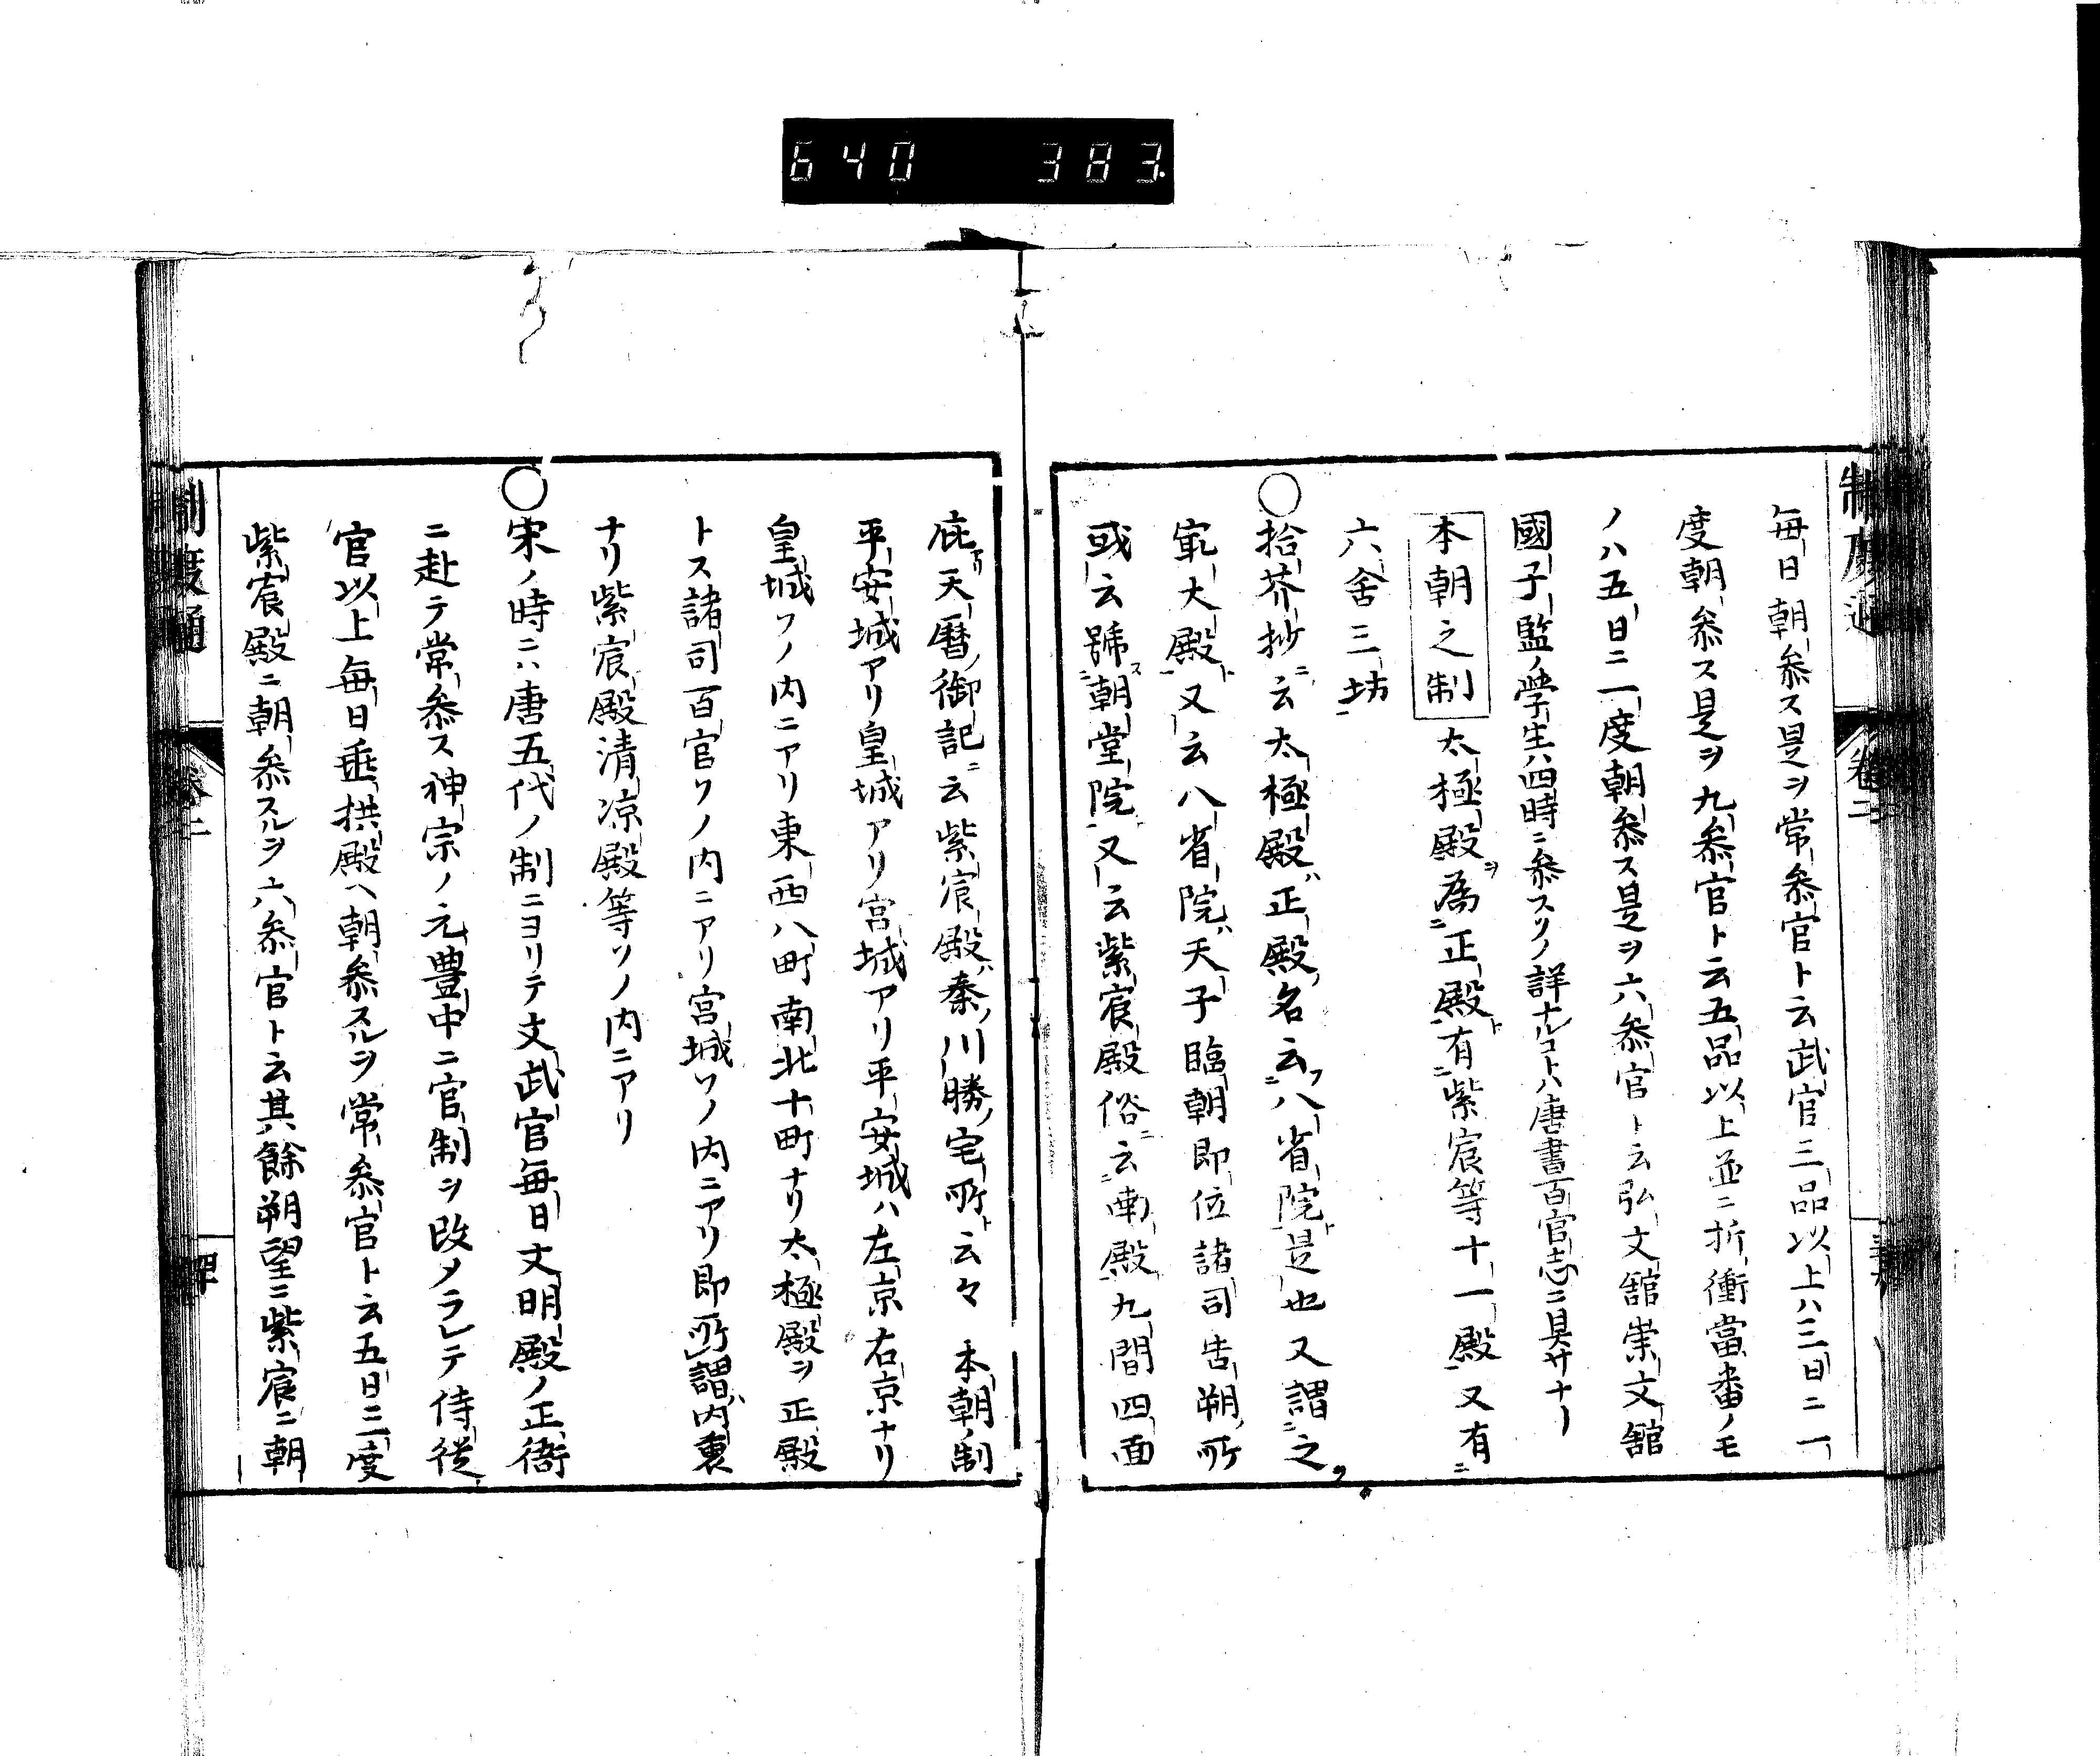 640 383
制度通 卷二
毎日朝参ス是ヲ常参官ト云武官三品以上ハ三日ニ一
度朝参ス是ヲ九参官ト云五品以上並ニ折衝當番ノモ
ノハ五日ニ一度朝参ス是ヲ六参官ト云弘文舘崇文舘
國子監ノ学生ハ四時ニ参スソノ詳ナルコトハ唐書百官志ニ具サナリ
本朝之制 太極殿ヲ為ニ正殿ト有ニ紫宸等十一殿又有ニ
六舎三坊
○拾芥抄ニ云太極殿ハ正殿ノ名云フニ八省院ト是也又謂ニ之ヲ
最大殿ト又云八省院ハ天子臨朝即位諸司告朔ノ所
或云號スニ朝堂院ト又云紫宸殿俗ニ云南殿九間四面
庇アリ天暦ノ御記ニ云紫宸殿ハ秦ノ川勝ノ宅所ト云々 本朝ノ制
平安城アリ皇城アリ宮城アリ平安城ハ左京右京ナリ
皇城ソノ内ニアリ東西八町南北十町ナリ太極殿ヲ正殿
トス諸司百官ソノ内ニアリ宮城ソノ内ニアリ即所謂ハ内裏
ナリ紫宸殿清凉殿等ソノ内ニアリ
○宋ノ時ニハ唐五代ノ制ニヨリテ文武官毎日文明殿ノ正衙
ニ赴テ常参ス神宗ノ元豊中ニ官制ヲ改メラレテ侍従
官以上毎日垂拱殿ヘ朝参スルヲ常参官ト云五日ニ一度
紫宸殿ニ朝参スルヲ六参官ト云其餘朔望ニ紫宸ニ朝
制度通 卷二